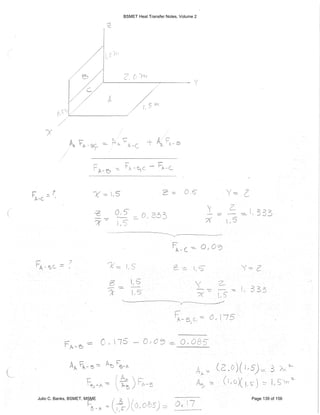 BSMET Heat Transfer Notes, Volume 2
Z
1.0 m
B
2.0 m
Y
C
A
1.5 m
0.5
X
A_A F_A-BC = A_A F_A-C + A_A F_A-B
F_A-B = F_A-BC - F_A-C
F_A-C = ? X = 1.5 Z = 0.5 Y = 2
Z/X = 0.5/1.5 = 0.333 Y/X = 2/1.5 = 1.333
F_A-C = 0,09
F_A-BC = ? X = 1.5 Z = 1,5 Y = 2
Z/X = 1.5/1.5 Y/X = 2/1.5 = 1.333
F_A-BC = 0.175
F_A-B = 0.175 - 0.09 = 0.085
A_A F_A-B = A_B F_B-A
A_A = (2.0)(1.5) = 3 m²
F_B-A = (A_A/A_B) F_A-B
A_B = (1.0)(1.5) = 1.5 m²
F_B-A = (3/1.5)(0.085) = 0.17
Julio C. Banks, BSMET, MSME Page 139 of 158